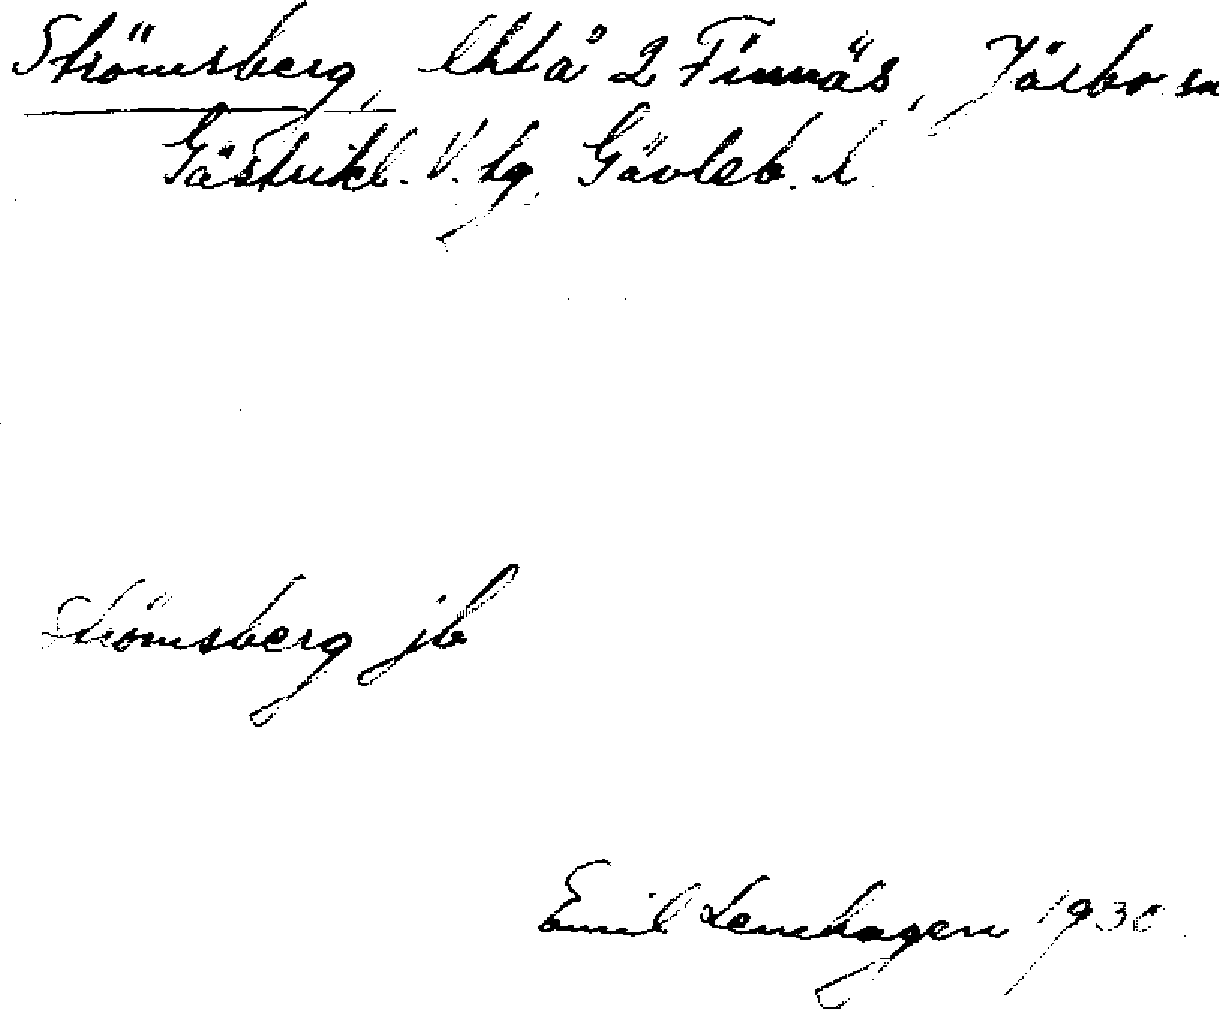 Strömsberg, lht å 2 Finnäs, Järbo sn
Gästrikl. V. tg. Gävleb. l.
Strömsberg jb
Emil Lenhagen 1930.